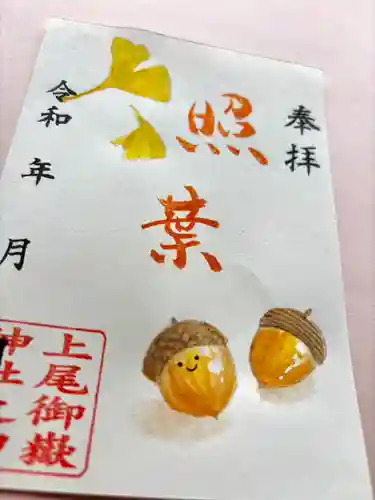 奉拝
照葉
令和
年
月
上尾御嶽
神社